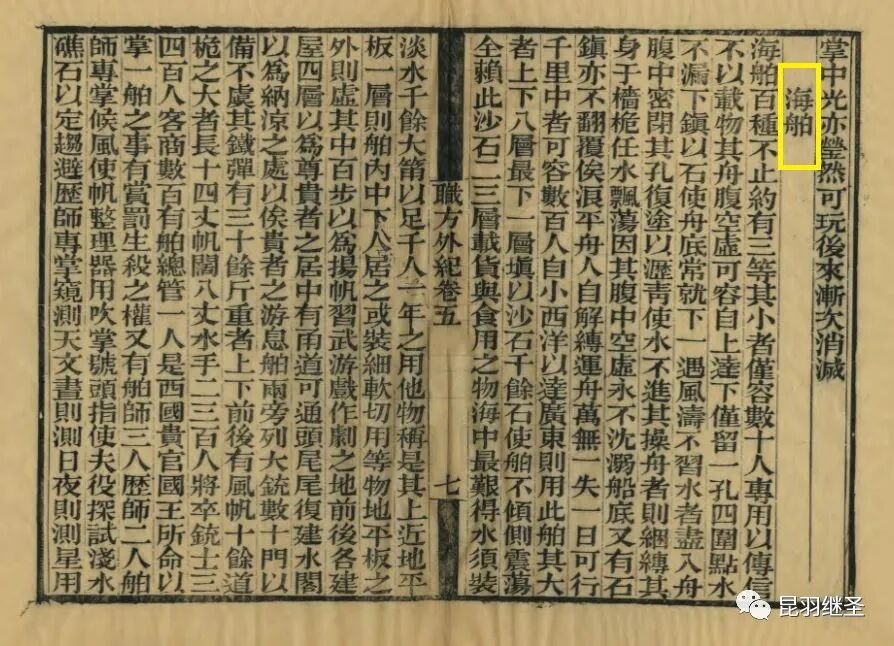 掌中光亦瑩然可玩後來漸次消滅
海舶
海舶百種不止約有三等其小者僅容數十人專用以傳信
不以載物其舟腹空虛可容自上達下僅留一孔四圍點水
不漏下鎮以石使舟底常就下一遇風濤不習水者盡入舟
腹中密閉其孔復塗以瀝青使水不進其操舟者則綑縛其
身于檣桅任水飄蕩因其腹中空虛永不沈溺船底又有石
鎮亦不翻覆俟浪平舟人自解縛運舟萬無一失一日可行
千里中者可容數百人自小西洋以達廣東則用此舶其大
者上下八層最下一層塡以沙石千餘石使舶不傾側震蕩
全賴此沙石二三層載貨與食用之物海中最艱得水須裝
職方外紀卷五
七
淡水千餘大筩以足千人一年之用他物稱是其上近地平
板一層則舶內中下人居之或裝細軟切用等物地平板之
外則虛其中百步以爲揚帆習武游戲作劇之地前後各建
屋四層以爲尊貴者之居中有甬道可通頭尾尾復建水閣
以爲納涼之處以俟貴者之游息舶兩旁列大銃數十門以
備不虞其鐵彈有三十餘斤重者上下前後有風帆十餘道
桅之大者長十四丈帆闊八丈水手二三百人將卒銃士三
四百人客商數百有舶總管一人是西國貴官國王所命以
掌一舶之事有賞罰生殺之權又有舶師三人歷師二人舶
師專掌候風使帆整理器用吹掌號頭指使夫役探試淺水
礁石以定趨避歷師專掌窺測天文晝則測日夜則測星用
昆羽继圣